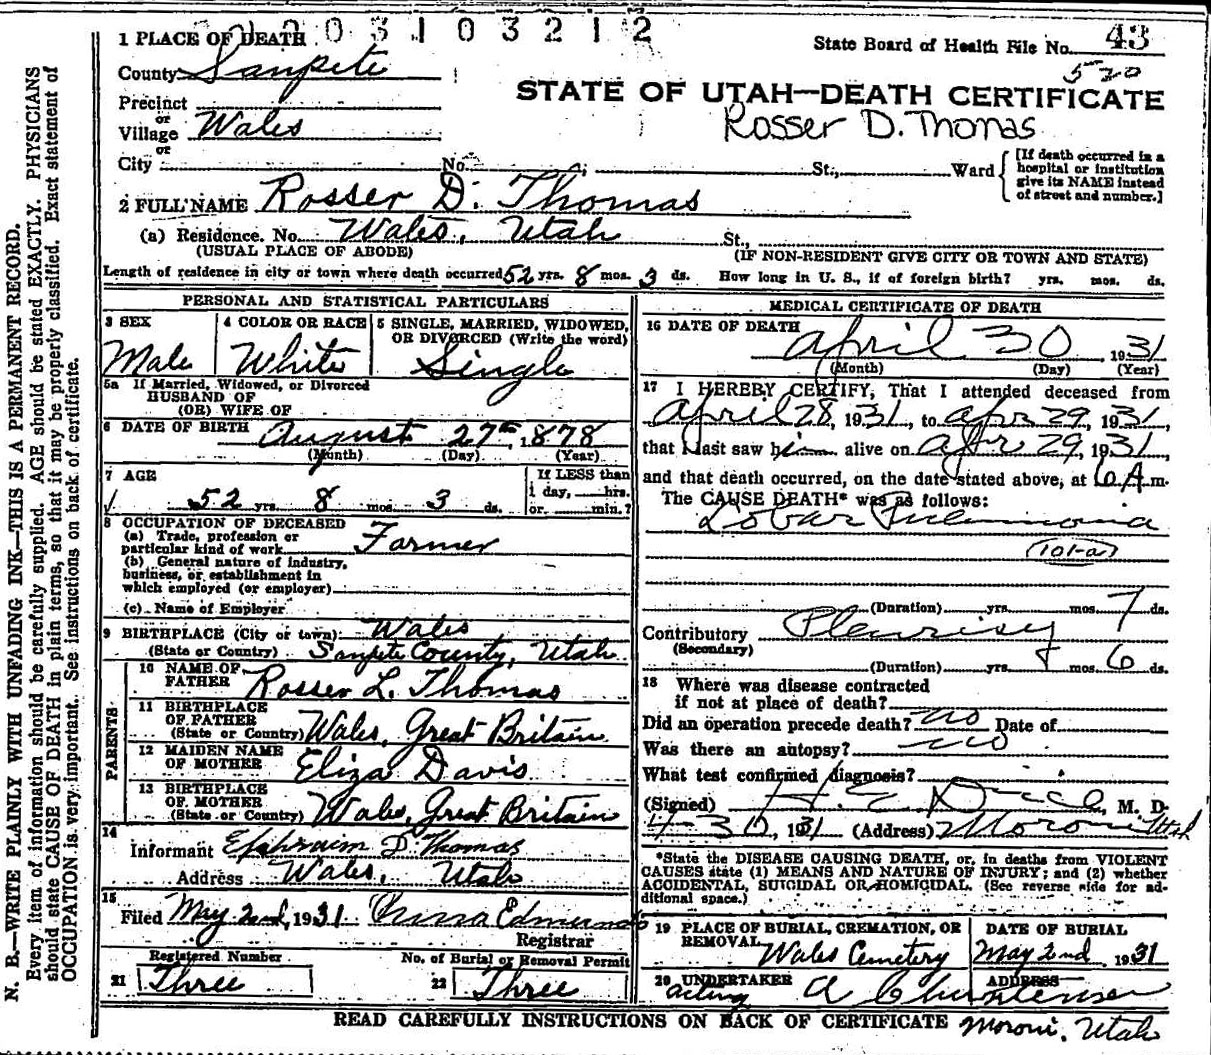 2 0 3 1 0 3 2 1 2
1 PLACE OF DEATH
State Board of Health File No. 43
County Sanpete
520
STATE OF UTAH—DEATH CERTIFICATE
Precinct
or
Village Wales
Rosser D. Thomas
or
City No. St., Ward
[If death occurred in a hospital or institution give its NAME instead of street and number.]
2 FULL NAME Rosser D. Thomas
(a) Residence. No. Wales, Utah St.,
(USUAL PLACE OF ABODE) (IF NON-RESIDENT GIVE CITY OR TOWN AND STATE)
Length of residence in city or town where death occurred 52 yrs. 8 mos. 3 ds. How long in U. S., if of foreign birth? yrs. mos. ds.
PERSONAL AND STATISTICAL PARTICULARS
3 SEX
Male
4 COLOR OR RACE
White
5 SINGLE, MARRIED, WIDOWED,
OR DIVORCED (Write the word)
Single
5a If Married, Widowed, or Divorced
HUSBAND OF
(OR) WIFE OF
6 DATE OF BIRTH August 27th, 1878
(Month) (Day) (Year)
7 AGE
52 yrs. 8 mos. 3 ds.
If LESS than
1 day, hrs.
or min.?
8 OCCUPATION OF DECEASED
(a) Trade, profession or
particular kind of work Farmer
(b) General nature of industry,
business, or establishment in
which employed (or employer)
(c) Name of Employer
9 BIRTHPLACE (City or town) Wales
(State or Country) Sanpete County, Utah
PARENTS
10 NAME OF
FATHER Rosser L. Thomas
11 BIRTHPLACE
OF FATHER
(State or Country) Wales, Great Britain
12 MAIDEN NAME
OF MOTHER Eliza Davis
13 BIRTHPLACE
OF MOTHER
(State or Country) Wales, Great Britain
14
Informant Ephraim D. Thomas
Address Wales, Utah
15
Filed May 2nd, 1931
Registrar
Registered Number
21 Three
No. of Burial or Removal Permit
22 Three
MEDICAL CERTIFICATE OF DEATH
16 DATE OF DEATH
April 30, 1931
(Month) (Day) (Year)
17 I HEREBY CERTIFY, That I attended deceased from
April 28, 1931, to Apr 29, 1931,
that I last saw him alive on Apr 29, 1931,
and that death occurred, on the date stated above, at 6 A m.
The CAUSE DEATH* was as follows:
Lobar Pneumonia
(101-a)
(Duration) yrs. mos. 7 ds.
Contributory Pleurisy
(Secondary)
(Duration) yrs. mos. 6 ds.
18 Where was disease contracted
if not at place of death?
Did an operation precede death? no Date of
Was there an autopsy? no
What test confirmed diagnosis?
(Signed) H. E. M. D.
4-30, 1931 (Address) Moroni Utah
*State the DISEASE CAUSING DEATH, or, in deaths from VIOLENT
CAUSES state (1) MEANS AND NATURE OF INJURY; and (2) whether
ACCIDENTAL, SUICIDAL OR HOMICIDAL. (See reverse side for ad-
ditional space.)
19 PLACE OF BURIAL, CREMATION, OR
REMOVAL Wales Cemetery
DATE OF BURIAL
May 2nd, 1931
20 UNDERTAKER ADDRESS
acting A Christensen
Moroni, Utah
READ CAREFULLY INSTRUCTIONS ON BACK OF CERTIFICATE
N. B.—WRITE PLAINLY WITH UNFADING INK—THIS IS A PERMANENT RECORD.
Every item of information should be carefully supplied. AGE should be stated EXACTLY. PHYSICIANS
should state CAUSE OF DEATH in plain terms, so that it may be properly classified. Exact statement of
OCCUPATION is very important. See instructions on back of certificate.